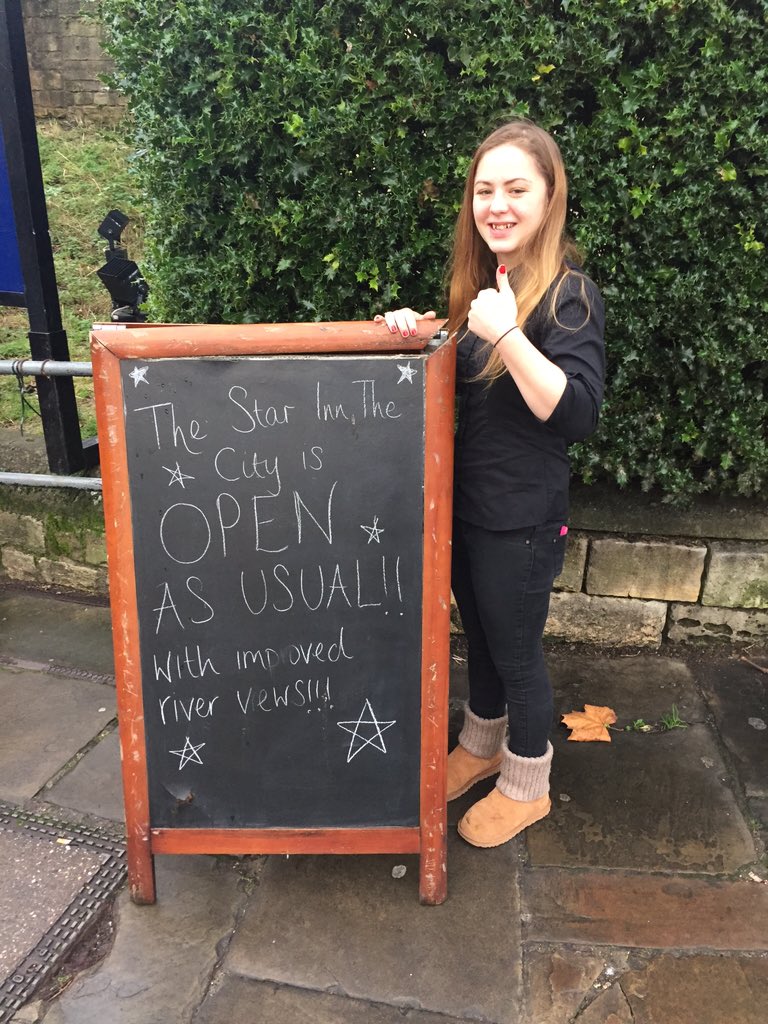 The Star Inn, The
City is
OPEN
AS USUAL!!
with improved
river views!!!